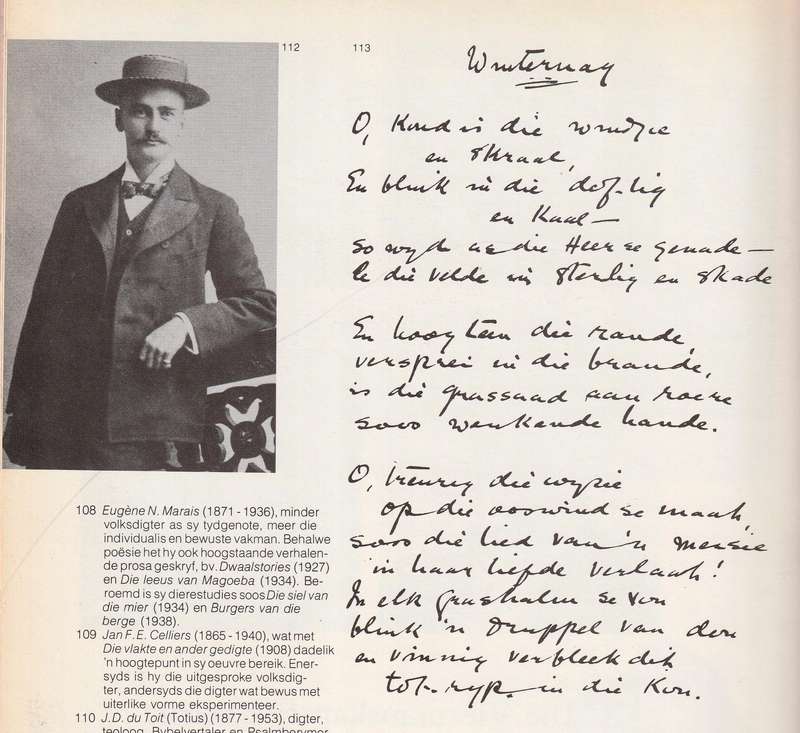 112
113
Winternag
O, Koud is die windjie
en skraal,
En blink in die dof-lig
en Kaal —
so wyd as die Heer se genade —
lê die velde in sterlig en skade
En hoog teen die rande,
versprei in die brande,
is die grassaad aan roere
soos wenkende hande.
O, treurig die wysie
op die ooswind se maat,
soos die lied van 'n meisie
in haar liefde verlaat!
In elk grashalm se vou
blink 'n druppel van dou
en vinnig verbleek dit
tot ryp in die Kou.
108 Eugène N. Marais (1871 - 1936), minder
volksdigter as sy tydgenote, meer die
individualis en bewuste vakman. Behalwe
poësie het hy ook hoogstaande verhalen-
de prosa geskryf, bv. Dwaalstories (1927)
en Die leeus van Magoeba (1934). Be-
roemd is sy dierestudies soos Die siel van
die mier (1934) en Burgers van die
berge (1938).
109 Jan F.E. Celliers (1865 - 1940), wat met
Die vlakte en ander gedigte (1908) dadelik
'n hoogtepunt in sy oeuvre bereik. Ener-
syds is hy die uitgesproke volksdig-
ter, andersyds die digter wat bewus met
uiterlike vorme eksperimenteer.
110 J.D. du Toit (Totius) (1877 - 1953), digter,
teoloog, Bybelvertaler en Psalmberymer